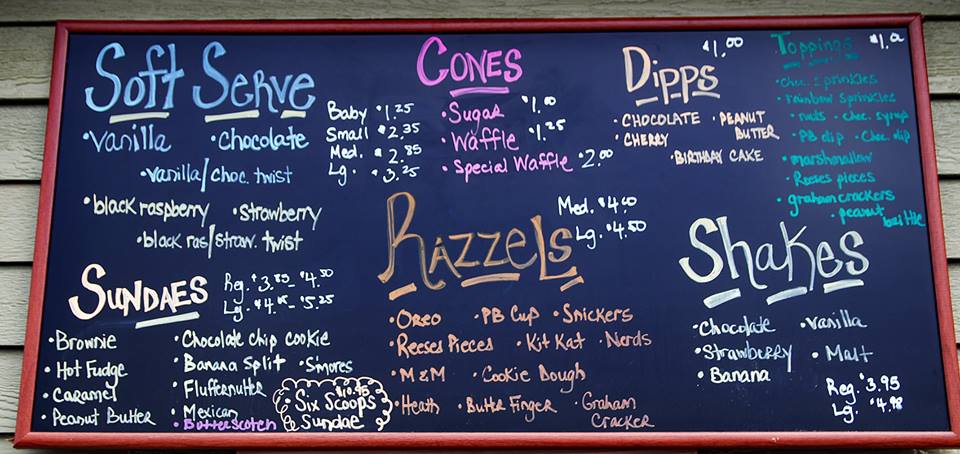 Soft Serve
• Vanilla • Chocolate
• Vanilla/choc. twist
• black raspberry • Strawberry
• black ras/straw. twist
Baby $1.25
Small $2.35
Med. $2.85
Lg. $3.25
Cones
• Sugar $1.00
• Waffle $1.25
• Special Waffle $2.00
Dipps $1.00
• CHOCOLATE • PEANUT BUTTER
• CHERRY
• BIRTHDAY CAKE
Toppings
• choc. sprinkles
• rainbow sprinkles
• nuts • choc. syrup
• PB dip • Choc. dip
• marshmallow
• Reeses pieces
• graham crackers
• peanut brittle
Sundaes
Reg. $3.85 - $4.50
Lg. - $5.25
• Brownie
• Hot Fudge
• Caramel
• Peanut Butter
• Chocolate chip cookie
• Banana Split • S'mores
• Fluffernutter
• Mexican
• Butterscotch
$10.95
• Six Scoops
Sundae
Razzels
Med. $4.00
Lg. $4.50
• Oreo • PB Cup • Snickers
• Reeses Pieces • Kit Kat • Nerds
• M&M • Cookie Dough
• Heath • Butter Finger • Graham
Cracker
Shakes
• Chocolate • Vanilla
• Strawberry • Malt
• Banana
Reg. $3.95
Lg. $4.98